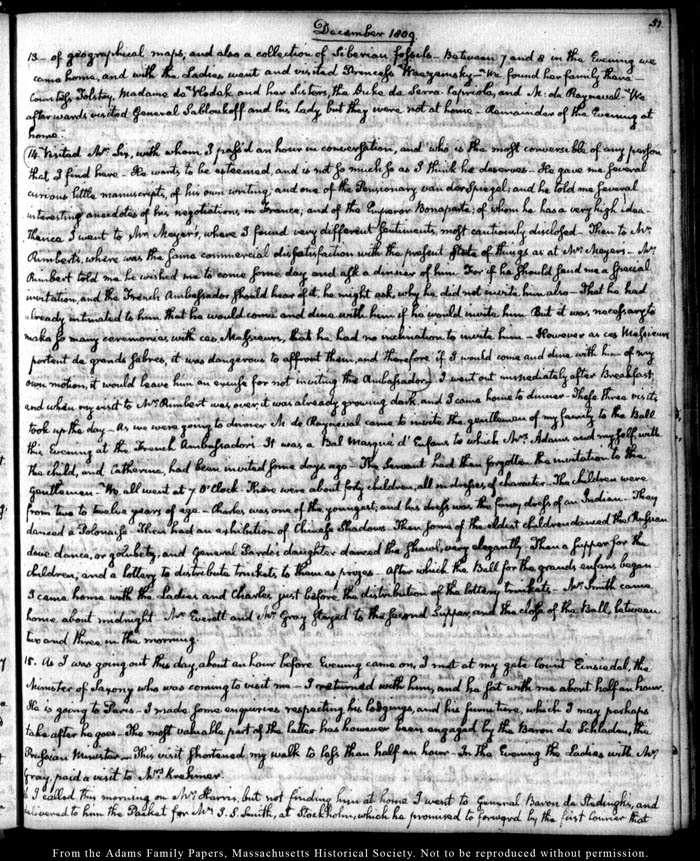 51.
December 1809.
13 - of geographical maps; and also a collection of Siberian fossils. Between 7 and 8 in the Evening we
came home, and with the Ladies went and visited Princess Weazemsky - We found her family there -
Countess Tolstoy, Madame de Vlodek and her Sisters, the Duke de Serra-Capriola, and M. de Rayneval - We
afterwards visited General Sabloukoff and his Lady, but they were not at home - Remainder of the Evening at
home.
14. Visited Mr. Six, with whom I pass'd an hour in conversation, and who is the most conversible of any person
that I find here - He wants to be esteemed, and is not so much so as I think he deserves - He gave me several
curious little manuscripts, of his own writing, and one of the Pensionary van der Spiegel; and he told me several
interesting anecdotes of his negotiations in France; and of the Emperor Bonaparte; of whom he has a very high idea -
Thence I went to Mr. Meyer's, where I found very different sentiments, most cautiously disclosed - Then to Mr.
Rimbert's, where was the same commercial dissatisfaction with the present state of things as at Mr. Meyer's - Mr.
Rimbert told me he wished me to come some day and ask a dinner of him. For if he should send me a special
invitation, and the French Ambassador should hear of it, he might ask, why he did not invite him also - That he had
already intimated to him that he would come and dine with him if he would invite him. But it was necessary to
make so many ceremonies with ces Messieurs, that he had no inclination to invite him - However as ces Messieurs
portent de grands sabres, it was dangerous to affront them, and therefore if I would come and dine with him of my
own motion, it would leave him an excuse for not inviting the Ambassador, I went out immediately after Breakfast,
and when my visit to Mr. Rimbert was over, it was already growing dark, and I came home to dinner - These three visits
took up the day - As we were going to dinner M. de Rayneval came to invite the gentlemen of my family to the Ball
this Evening at the French Ambassador's. It was a Bal masqué d'Enfans to which Mrs. Adams and myself, with
the child, and Catherine, had been invited some days ago - The Servant had then forgotten the invitation to the
Gentlemen - We all went at 7 O'Clock. There were about forty children, all in dresses of character. The children were
from two to twelve years of age - Charles was one of the youngest, and his dress was the fancy dress of an Indian. They
danced a Polonaise. Then had an exhibition of Chinese Shadows. Then some of the eldest children danced the Russian
dove dance, or golubets; and General Pardo's daughter danced the Shawl, very elegantly. Then a supper for the
children; and a lottery to distribute trinkets to them as prizes. After which the Ball for the grands enfans began.
I came home with the Ladies and Charles just before the distribution of the lottery trinkets - Mr. Smith came
home about midnight - Mr. Everett and Mr. Gray stayed to the second Supper, and the close of the Ball, between
two and three in the morning.
15. As I was going out this day, about an hour before Evening came on, I met at my gate Count Einsiedel, the
Minister of Saxony who was coming to visit me - I returned with him, and he sat with me about half an hour.
He is going to Paris - I made some enquiries respecting his lodgings, and his furniture, which I may perhaps
take after he goes - The most valuable part of the latter has however been engaged by the Baron de Schladen, the
Prussian Minister - This visit shortened my walk to less than half an hour - In the Evening the Ladies with Mr.
Gray, paid a visit to Mrs. Krehmer.
I called this morning on Mr. Harris, but not finding him at home I went to General Baron de Stedingk's, and
delivered to him the Packet for Mr. J. S. Smith, at Stockholm, which he promised to forward by the first Courier that
From the Adams Family Papers, Massachusetts Historical Society. Not to be reproduced without permission.